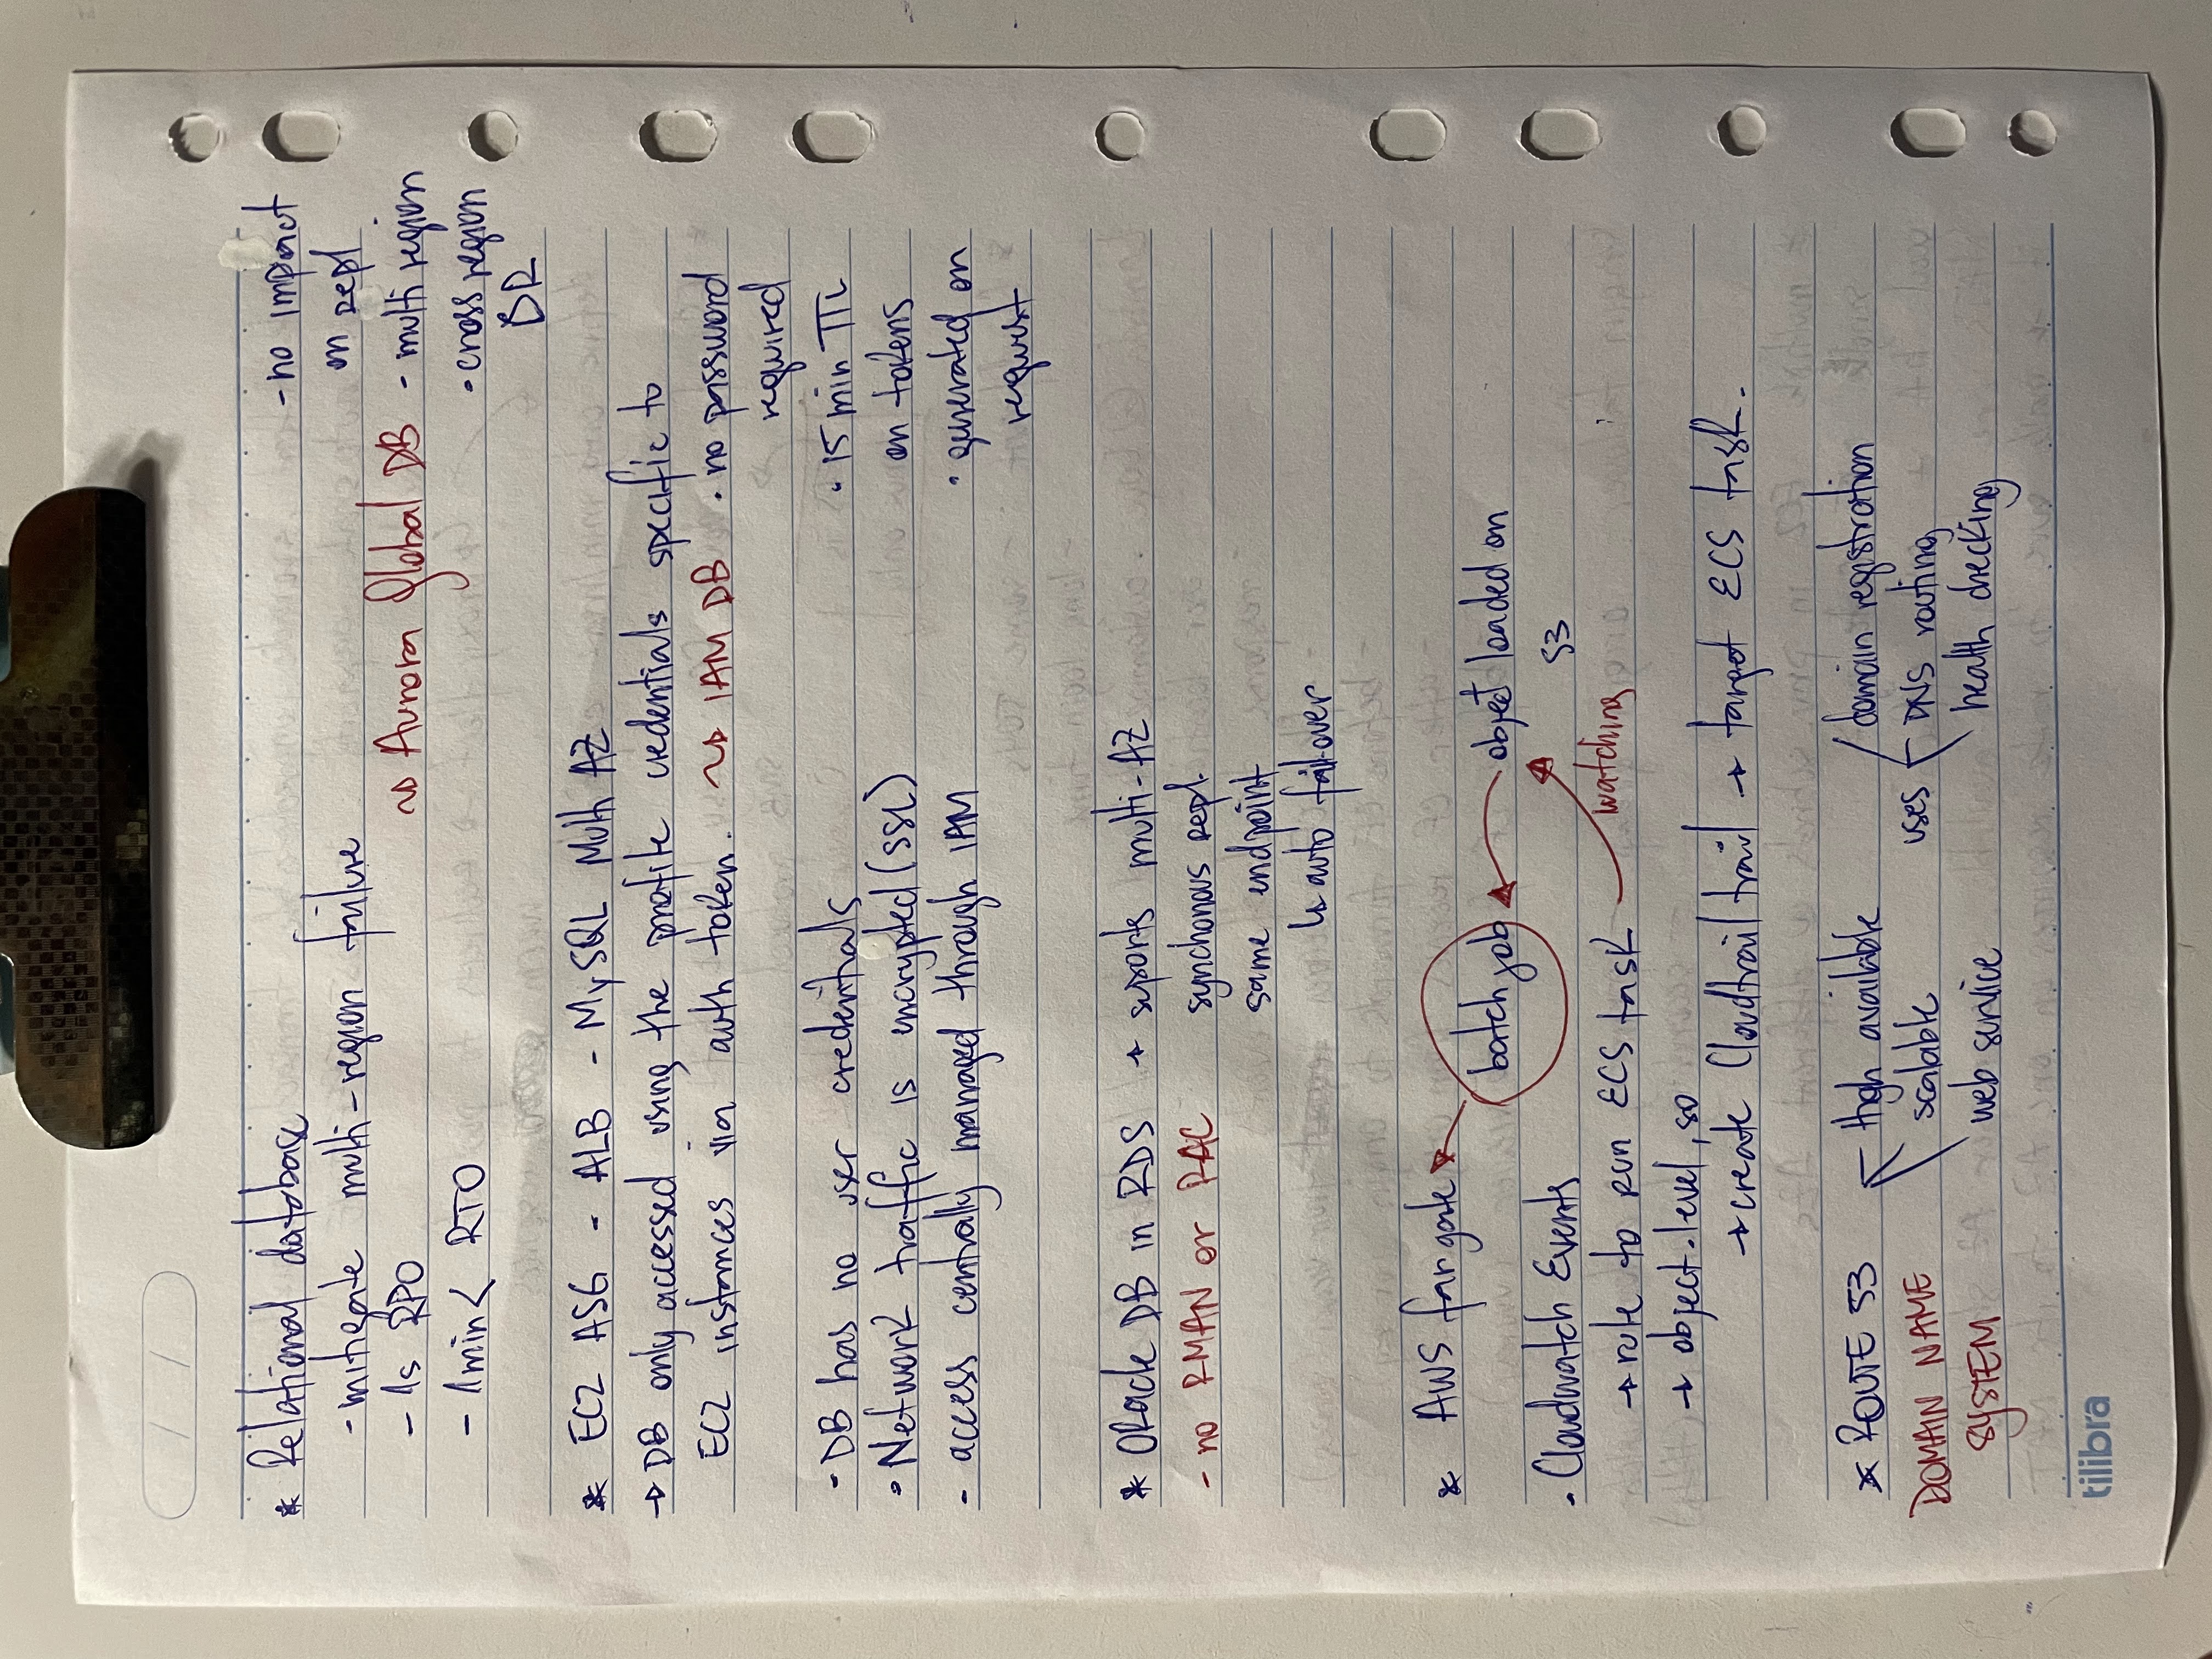 * Relational database
- mitigate multi-region failure
- 1s RPO
- 1min < RTO
~> Aurora Global DB
- no impact
on repl
- multi region
- cross region
DR
* EC2 ASG - ALB - MySQL Multi AZ
→ DB only accessed using the profile credentials specific to
EC2 instances via auth token. ~> IAM DB
- no password
required
- 15 min TTL
on tokens
- generated on
request
- DB has no user credentials
- Network traffic is encrypted (SSL)
- access centrally managed through IAM
* Oracle DB in RDS → suports multi-AZ
- no RMAN or RAC
synchonous repl.
same endpoint
↳ auto fail-over
* AWS fargate
batch job
object loaded on
S3
- Cloudwatch Events
→ rule to run ECS task
watching
→ object-level, so
→ create Cloudtrail trail → target ECS task.
* ROUTE 53
DOMAIN NAME
SYSTEM
High available
scalable
web service
uses
domain registration
DNS routing
health checking
tilibra